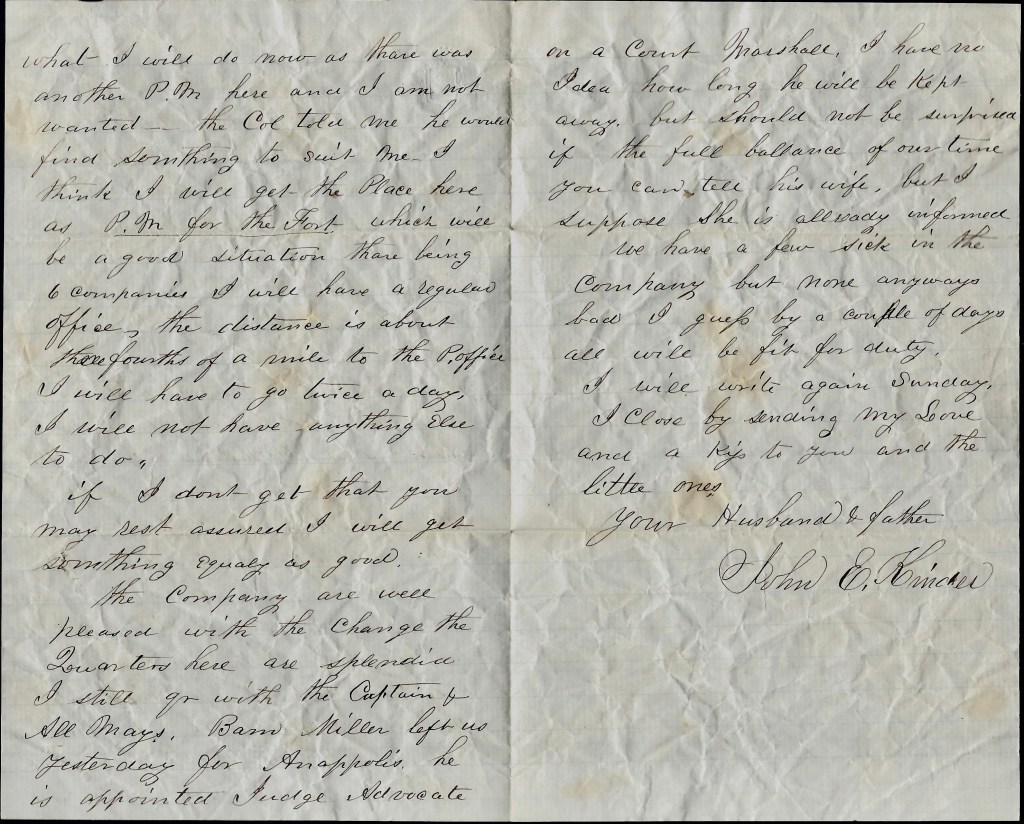 what I will do now as thare was
another P.M here and I am not
wanted — the Col told me he would
find somthing to suit me - I
think I will get the Place here
as P.M for the Fort which will
be a good situation thare being
6 companies I will have a regular
office, the distance is about
three fourths of a mile to the P. office
I will have to go twice a day,
I will not have anything Else
to do,,
if I dont get that you
may rest assured I will get
Somthing Equaly as good.
the Company are well
pleased with the Change the
Quarters here are splendid
I still qr with the Captain &
All Mays. Bam Miller left us
yesterday for Anappolis. he
is appointed Judge Advocate
on a Court Marshall, I have no
Idea how long he will be Kept
away. but should not be surprised
if the full ballance of our time
you can tell his wife, but I
suppose she is allready informed
We have a few sick in the
Company but none anyways
bad I guess by a couple of days
all will be fit for duty.
I will write again Sunday,
I Close by sending my Love
and a Kiss to you and the
little ones,
Your Husband & father
John E.